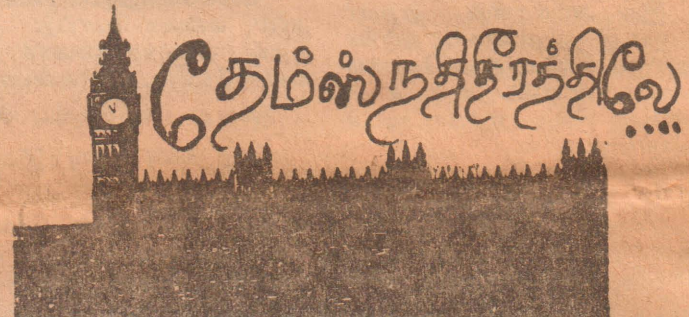 தேம்ஸ்நதிதீரத்திலே....